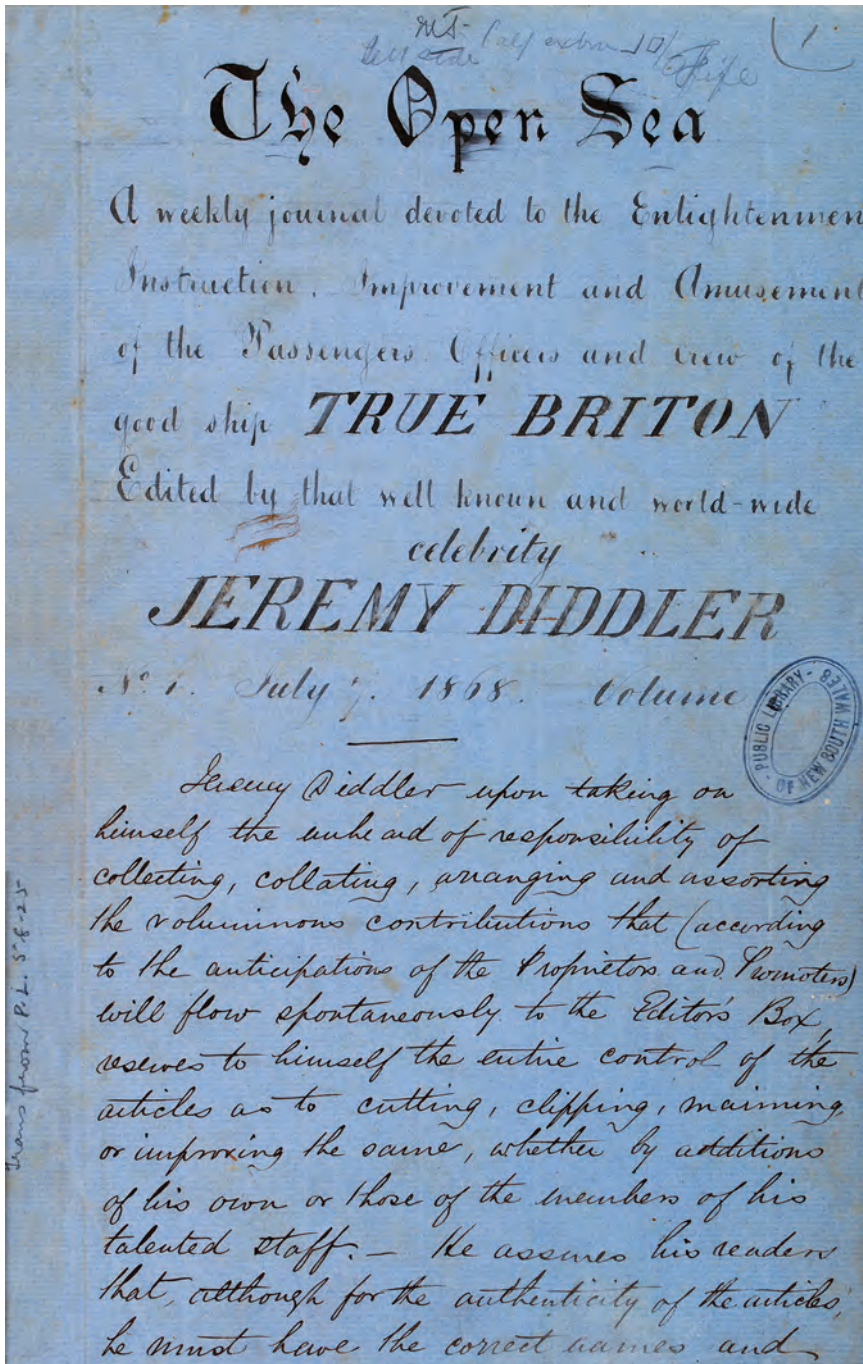 1
The Open Sea
A weekly journal devoted to the Enlightenmen
Instruction, Improvement and Amusement
of the Passengers Officers and crew of the
good ship TRUE BRITON
Edited by that well known and world-wide
celebrity
JEREMY DIDDLER
No. 1. July 7. 1868. Volume
PUBLIC LIBRARY
OF NEW SOUTH WALES
Jeremy Diddler upon taking on
himself the unheard of responsibility of
collecting, collating, arranging and assorting
the voluminous contributions that (according
to the anticipations of the Proprietors and Promoters)
will flow spontaneously to the Editor's Box,
reserves to himself the entire control of the
articles as to cutting, clipping, maiming,
or improving the same, whether by additions
of his own or those of the members of his
talented staff. — He assures his readers
that, although for the authenticity of the articles,
he must have the correct names and
Trans from P.L. 5-8-25